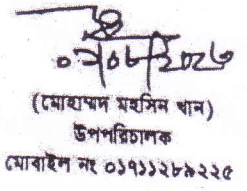 (মোহাম্মদ মহসিন খান)
উপপরিচালক
মোবাইল নং ০১৭১১২৮৯২২৫